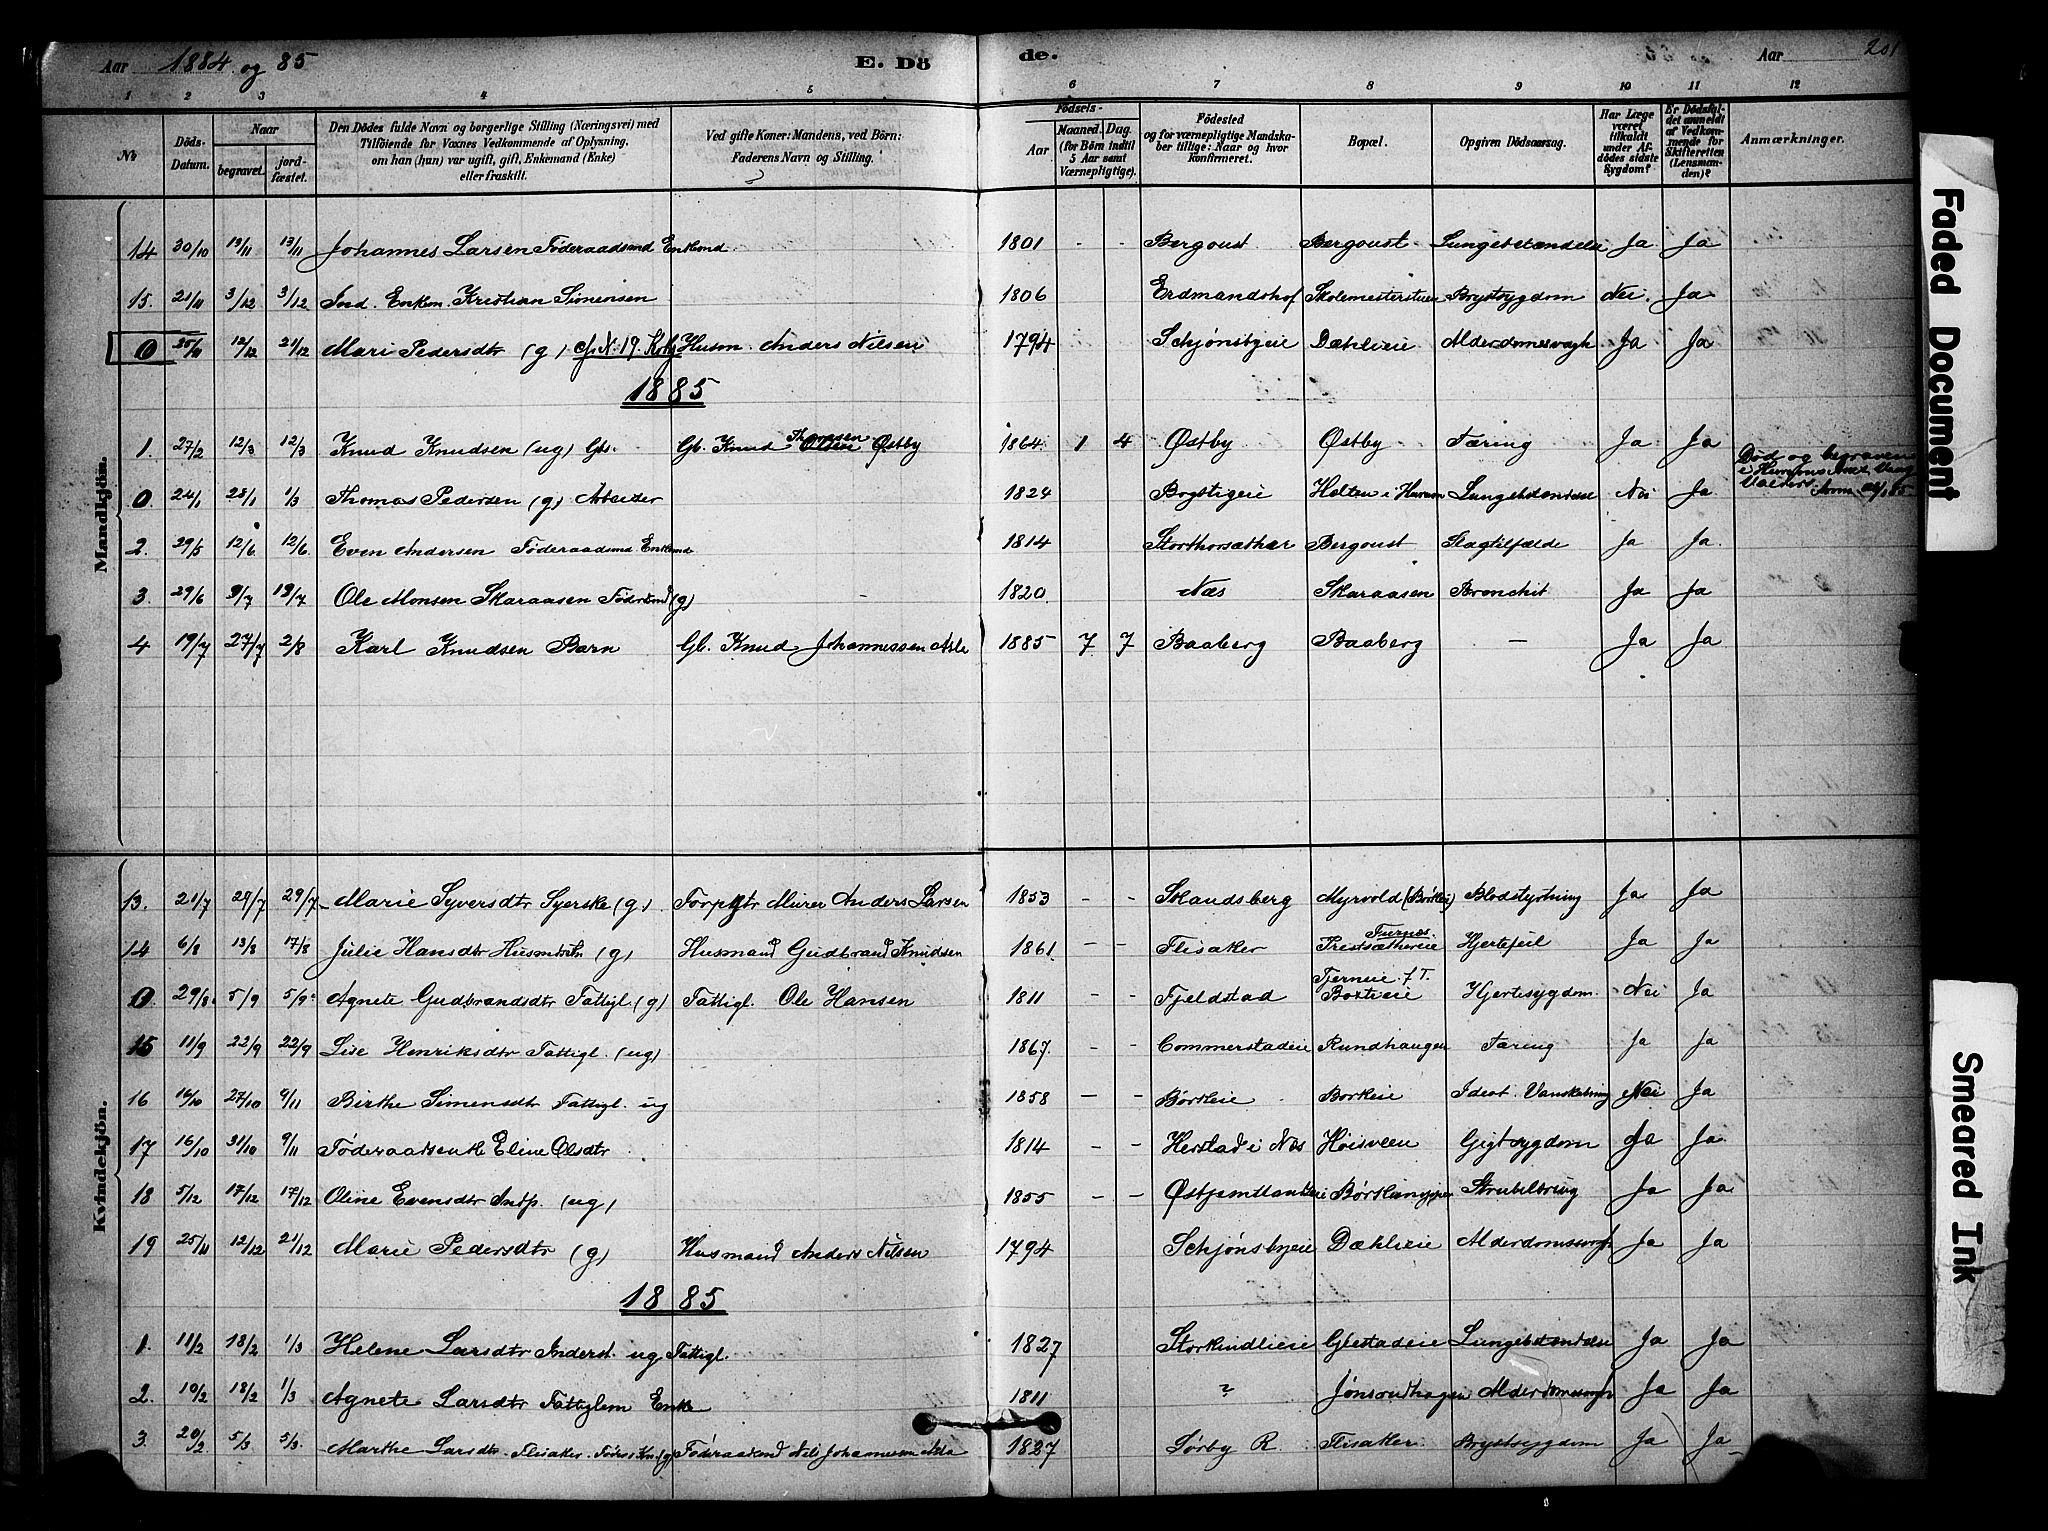 Aar 1884 og 85 E. Dö de. Aar 201
1 2 3 4 5 6 7 8 9 10 11 12
Nr Döds-Datum. Naar begravet. jord-fæstet. Den Dödes fulde Navn og borgerlige Stilling (Næringsvei) med Tilföiende for Voxnes Vedkommende af Oplysning, om han (hun) var ugift, gift, Enkemand (Enke) eller fraskilt. Ved gifte Koner: Mandens, ved Börn: Faderens Navn og Stilling. Födsels- Aar Maaned. Dag. (for Börn indtil 5 Aar samt Værnepligtige). Födested og for værnepligtige Mandskaber tillige: Naar og hvor Konfirmeret. Bopæl. Opgiven Dödsaarsag. Har Læge været tilkaldt under Afdödes sidste Sygdom? Er Dödsfaldet anmeldt af Vedkommende for Skifteretten (Lensmanden)? Anmærkninger.
Mandkjön.
14 30/10 13/11 13/11 Johannes Larsen Föderaadsmd Enkemd 1801 - - Bergoust Bergoust Lungebetændelse Ja Ja
15. 21/11 3/12 3/12 Ind. Enkem. Kristian Simensen 1806 Erdmandshof Skolemesterstuen Brystsygdom Nei. Ja
0 25/11 12/12 21/12 Mari Pedersdtr (g) cfr. N. 19. Husm. Anders Nilsen 1794 Schjønsbyeie Dæhlieie Alderdomssvagh Ja Ja
1885
1. 27/2 12/3 12/3 Knud Knudsen (ug) Gbs. Gb. Knud Thoresen Olsen Østby 1864. 1 4 Østby Østby Tæring Ja Ja
0. 24/1 28/1 1/3 Thomas Pedersen (g) Arbeider 1824 Brystigeie Holten i Hurum Lungebetændelse Nei Ja Død og begraven i Hurums Anex Vang Valders
2. 29/5 12/6 12/6. Even Andersen Föderaadsmd Enkemd 1814 Storthorsæther Bergoust Slagtilfælde Ja Ja.
3. 29/6 9/7 19/7 Ole Monsen Skaraasen (g) - 1820. Næs Skaraasen Bronchit Ja Ja
4 19/7 27/7 2/8 Karl Knudsen Barn Gb. Knud Johannessen Aske 1885 7 7 Baaberg Baaberg - Ja Ja
Kvindekjön.
13. 21/7 29/7 29/7 Marie Syversdtr Syerske (g) Murer Anders Larsen 1853 - - Stlandsberg Myrvold (Börkeie) Blodstyrtning Ja Ja
14 6/8 13/8 17/8 Julie Hansdtr (g) Husmand Gudbrand Knudsen 1861 - - Flisaker Furnes. Prestsæthereie Hjertefeil Ja Ja
0. 29/8 5/9 5/9 Agnete Gudbrandsdtr Fattigl. (g) Fattigl. Ole Hansen 1811 - - Fjeldstad Hjertesygdom. Nei Ja
15 11/9 22/9 22/9 Lise Henriksdtr Fattigl. (ug) 1867. - - Commerstadeie Rundhaugen Tæring Ja Ja
16 27/10 9/11 Birthe Simensdtr Fattigl. ug 1858 - - Börkeie Borkeie Idiot. Nei Ja
17 16/10 31/10 9/11 Föderaadsenke Eline Olsdtr 1814 - - Herstad i Næs Hoisveen Gigtsygdom Ja Ja
18 5/12 17/12 17/12 Oline Evensdtr Indp. (ug) 1855 - - Strubebrug Ja Ja
19 25/11 12/12 21/12 Marie Pedersdtr (g) Husmand Anders Nilsen 1794 Schjønsbyeie Dæhlieie Alderdomssvagh. Ja Ja
1885
1. 11/2 18/2 1/3 Helene Larsdtr Inderst. ug Fattigl. 1827 Storkindlieie Gjestadeie Lungebetændelse Ja Ja
2. 10/2 18/2 1/3 Agnete Larsdtr Fattiglem Enke 1811 ? Jönsrudhagen Alderdomssvagh Ja Ja
3. 20/2 5/3 5/3. Marthe Larsdtr Flisaker. (g) Föderaadsmd Nils Johannesen 1827 Sörby R. Flisaker. Brystsygdom Ja Ja
Faded Document
Smeared Ink